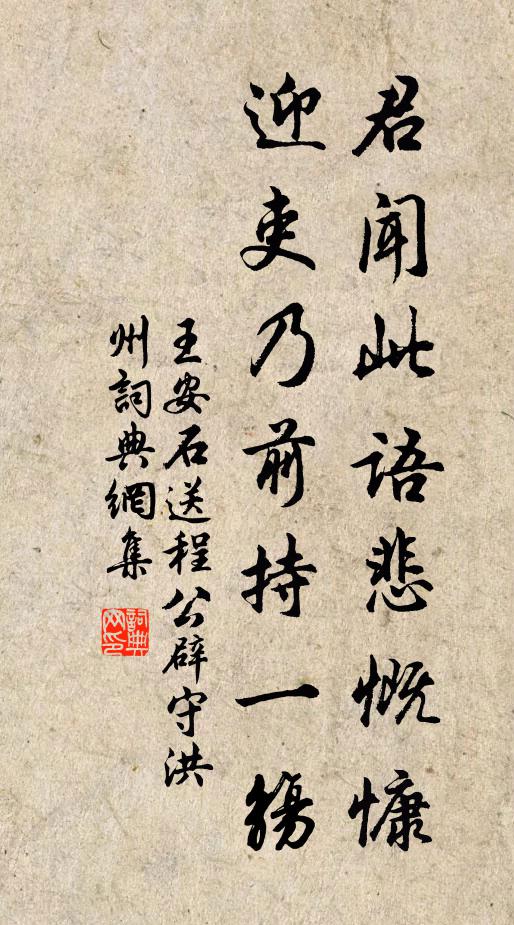 君聞此語悲慨慷
迎吏乃前持一觴
王安石送程公辟守洪
州詞典網集
詞典
网印